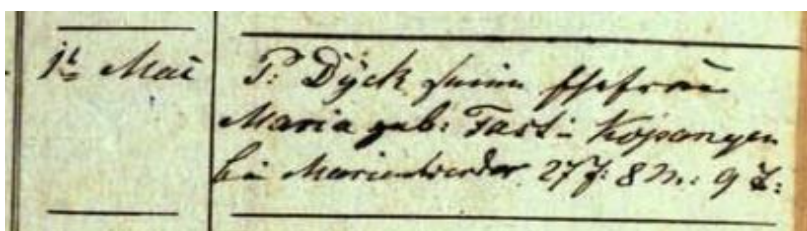 1t Mai
P: Dÿck seine Ehefrau
Maria geb: Fast in
bei Marienwerder. 27 J: 8 M.: 9 T: